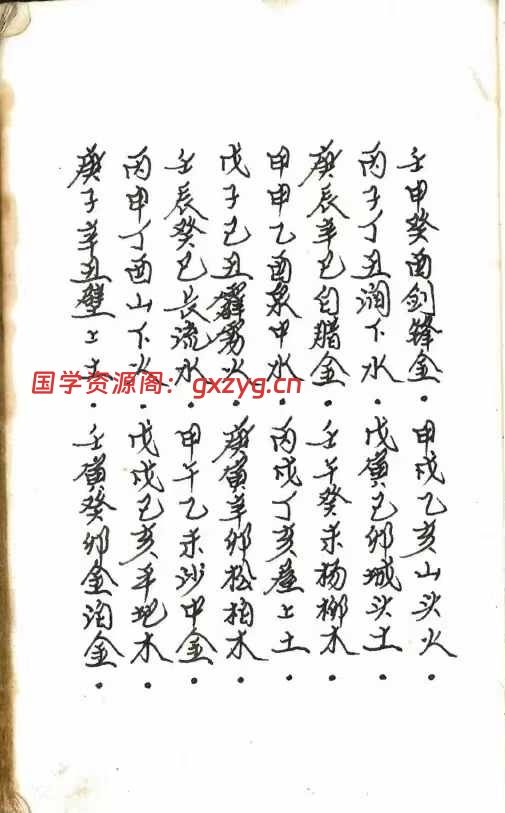 壬申癸酉剑锋金·甲戌乙亥山头火·
丙子丁丑涧下水·戊寅己卯城头土·
庚辰辛巳白腊金·壬午癸未杨柳木·
甲申乙酉泉中水·丙戌丁亥屋上土·
戊子己丑霹雳火·庚寅辛卯松柏木·
壬辰癸巳长流水·甲午乙未沙中金·
丙申丁酉山下火·戊戌己亥平地木·
庚子辛丑壁上土·壬寅癸卯金泊金·
国学资源阁：gxzyg.cn